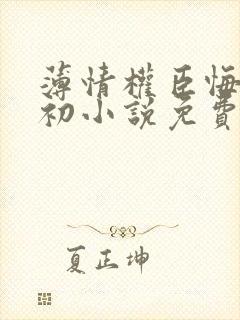 薄情權臣悔
初小說免費
夏正坤